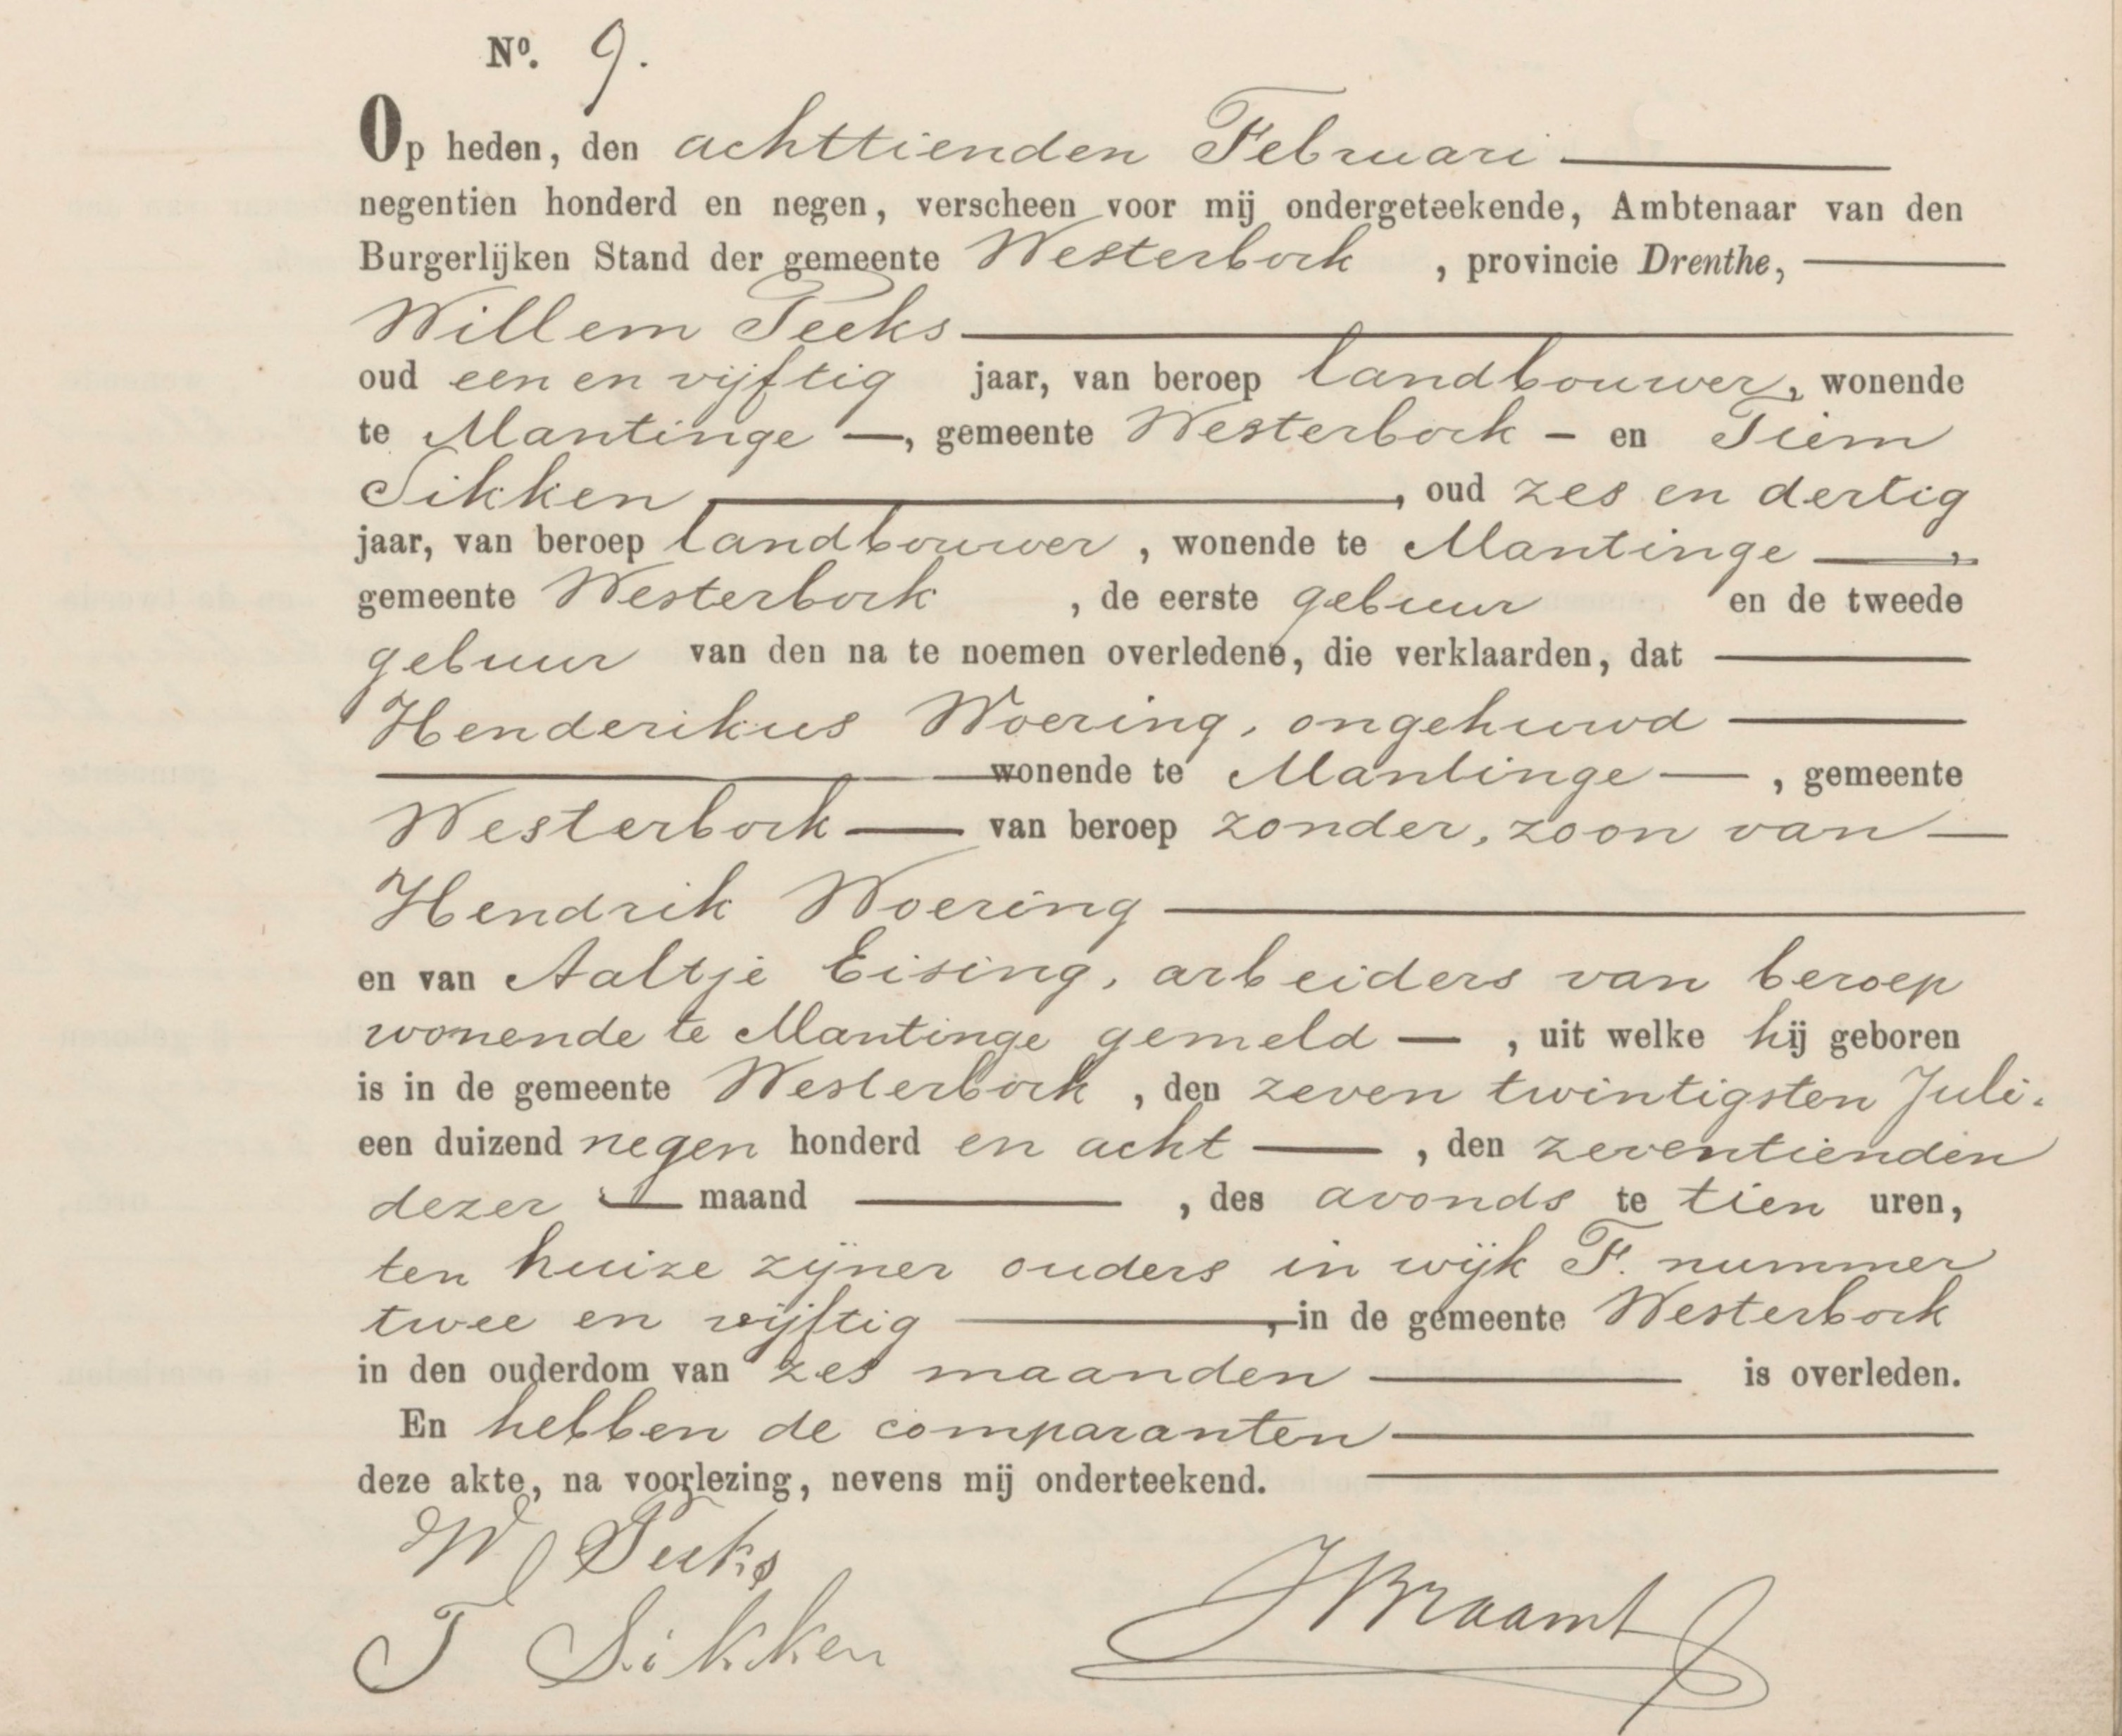 Nº. 9.
Op heden, den achttienden Februari
negentien honderd en negen, verscheen voor mij ondergeteekende, Ambtenaar van den
Burgerlijken Stand der gemeente Westerbork, provincie Drenthe,
Willem Peeks
oud een en vijftig jaar, van beroep landbouwer, wonende
te Mantinge —, gemeente Westerbork – en Tiem
Sikken, oud zes en dertig
jaar, van beroep landbouwer, wonende te Mantinge —,
gemeente Westerbork, de eerste gebuur en de tweede
gebuur van den na te noemen overledene, die verklaarden, dat
Henderikus Woering, ongehuwd
wonende te Mantinge —, gemeente
Westerbork — van beroep zonder, zoon van —
Hendrik Woering
en van Aaltje Eising, arbeiders van beroep
wonende te Mantinge gemeld —, uit welke hij geboren
is in de gemeente Westerbork, den zeven twintigsten Juli.
een duizend negen honderd en acht —, den zeventienden
dezer — maand —, des avonds te tien uren,
ten huize zijner ouders in wijk F. nummer
twee en vijftig —, in de gemeente Westerbork
in den ouderdom van zes maanden — is overleden.
En hebben de comparanten
deze akte, na voorlezing, nevens mij onderteekend.
W Peeks
T Sikken